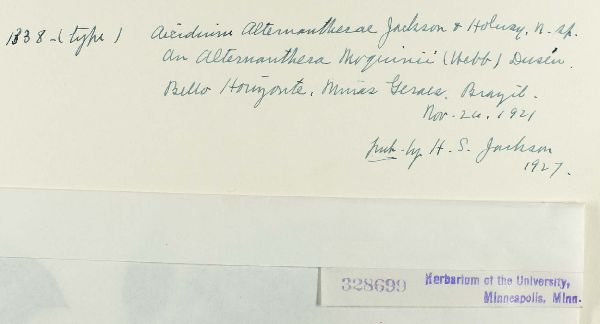 1338-(type) Aecidium Alternantherae Jackson & Holway, n. sp.
On Alternanthera Moquinii (Webb) Dusén.
Bello Horizonte, Minas Geraes, Brazil.
Nov. 26, 1921
pub. by H. S. Jackson
1927.
328699 Herbarium of the University,
Minneapolis, Minn.